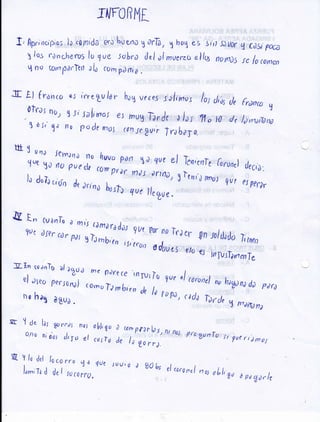 INFORME
I. Aprincipios la comida era buena y arTa, y hoy es sin savor y casi poca
y los rancheros lo que sobra del almuerzo ellos nomás se lo comen
y no comparTen a la compañia.
II El franco es irregular hay veces salimos los dias de franco y
oTras no, y si salimos es muy Tarde a las
y asi ya no podemos conseguir Trabajo.
III y una semana no huvo pan ya que el TenienTe Coronel decia:
que ya no puede comprar mas arina, y Tenia mos que esperar
la doTación de arina hasTa que llegue.
IV En cuanTo a mis camaradas que por no Traer un soldado Tiran
que aserca par y Tambien isieron es injusTamenTe
V. En cuanTo al agua me parece injusTo que el coronel no haga nada para
el aseo personal como Tambien de la ropa, cada Tarde y mañana
no hay agua.
VI y de las gorras nos obligo a comprarlas, ni nos pregunTo si queriamos
o no ni nos dijo el cosTo de la gorra.
VII y lo del socorro ya que son 80 bs el coronel nos obligo a pagarle
la miTad del socorro.